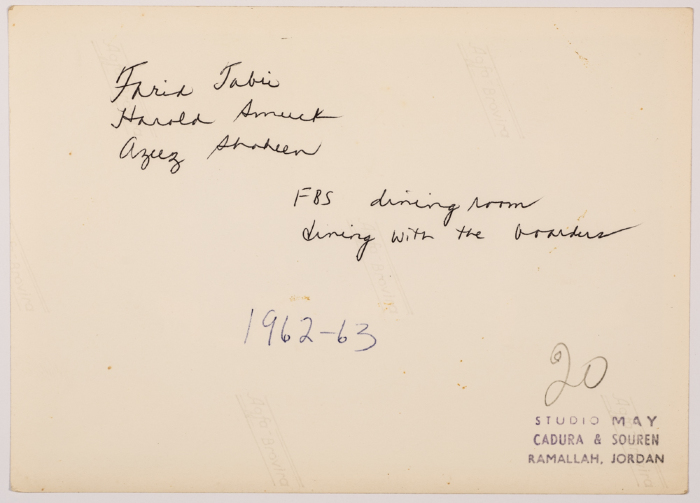 Farid Tabii
Harold Smuck
Azeez Shaheen
FBS dining room
dining with the boarders
1962-63
20
STUDIO MAY
CADURA & SOUREN
RAMALLAH, JORDAN